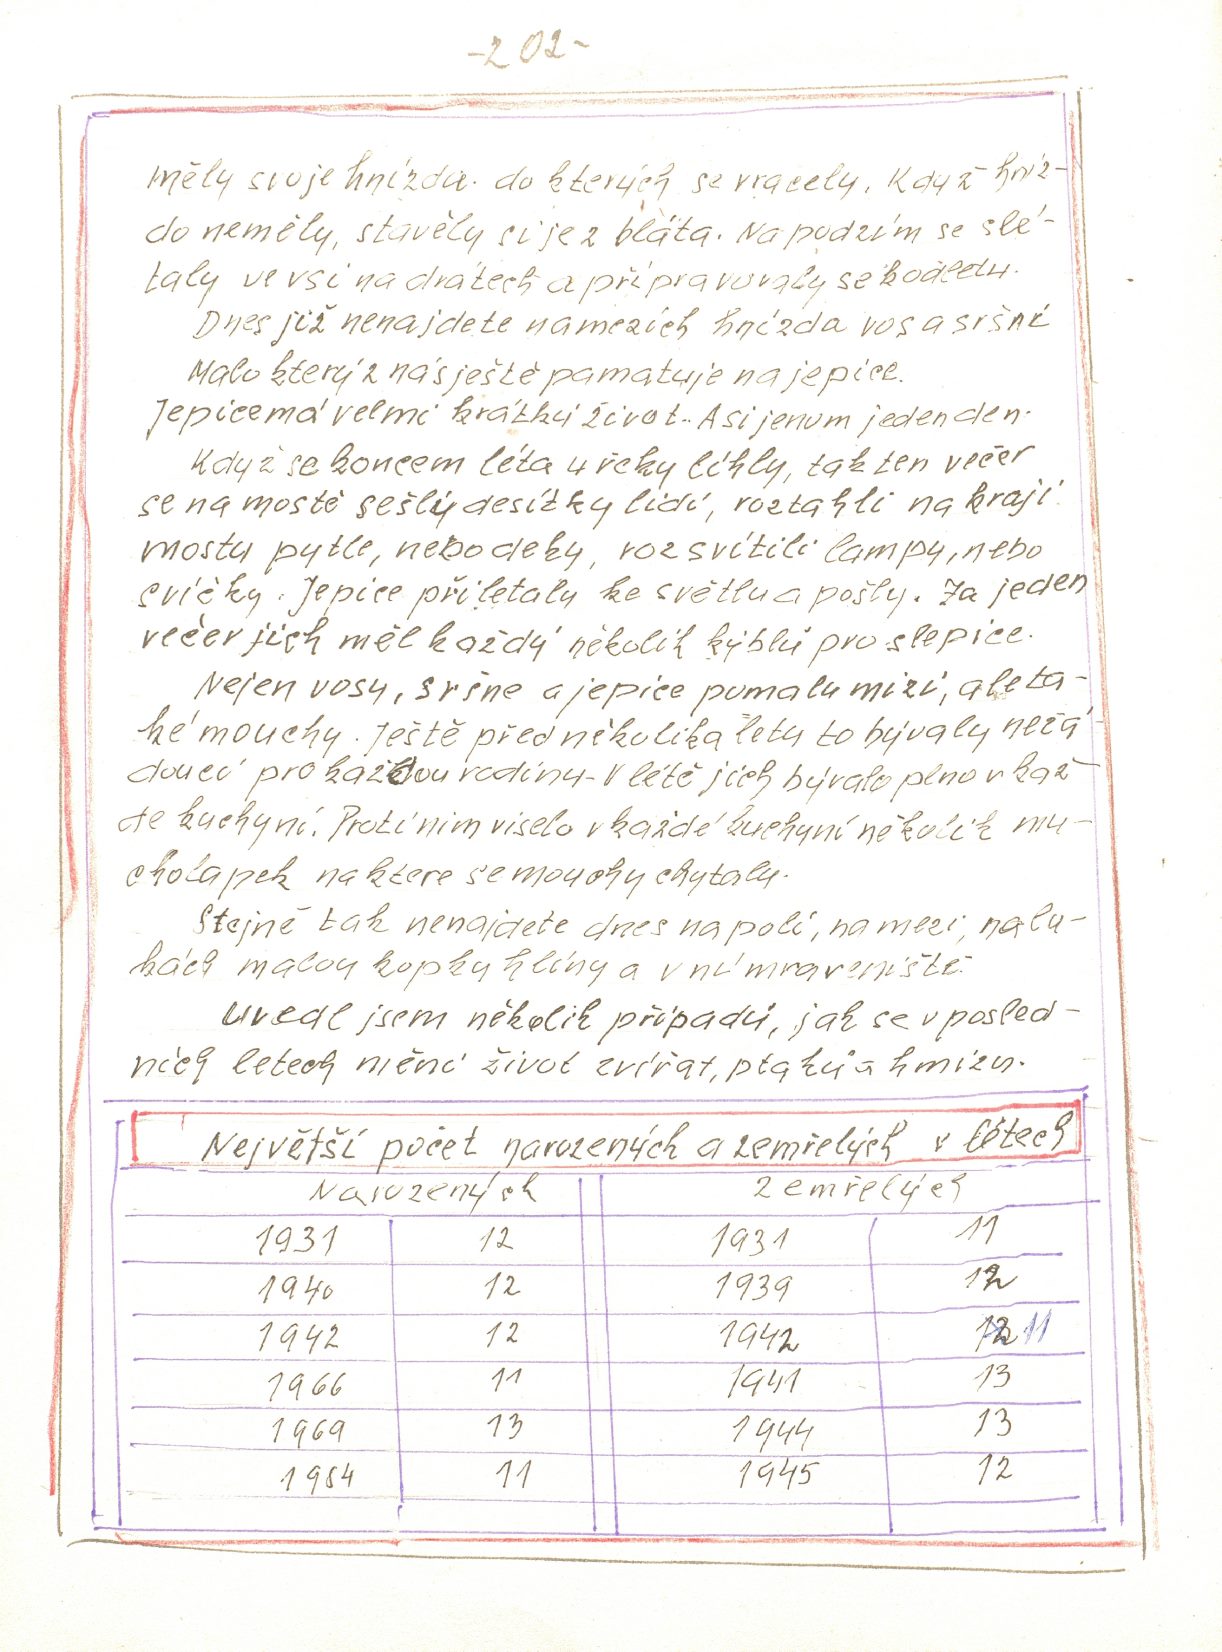 -202-
měly svoje hnízda. do kterých se vracely. Když hníz-
do neměly, stavěly si je z bláta. Na podzim se slé-
taly ve vsi na drátech a připravovaly se k odletu.
Dnes již nenajdete na mezích hnízda vos a sršní
Málo který z nás ještě pamatuje na jepice.
Jepice má velmi krátký život.. Asi jenom jeden den.
Když se koncem léta u řeky líhly, tak ten večer
se na mostě sešly desítky lidí, roztahli na kraji
mostu pytle, nebo deky, rozsvítili lampy, nebo
svíčky. Jepice přiletaly ke světlu a pošly. Za jeden
večer jich měl každý několik kýblů pro slepice.
Nejen vosy, sršne a jepice pomalu mizí, ale ta-
ké mouchy. Ještě před několika letu to bývaly nežá-
doucí pro každou rodinu. V létě jich bývalo plno v kaž-
de kuchyní. Proti nim viselo v každé kuchyní několik mu-
cholapek na ktere se mouchy chytaly.
Stejně tak nenajdete dnes na polí, na mezi, na lu-
kách malou kopku hlíny a v ní mraveniště.
Uvedl jsem několik případů, jak se v posled-
ních letech mění život zvířat, ptaků a hmizu.
Největší počet narozených a zemřelých v létech
Narozených zemřelých
1931 12 1931 11
1940 12 1939 12
1942 12 1942 12 11
1966 11 1941 13
1969 13 1944 13
1984 11 1945 12